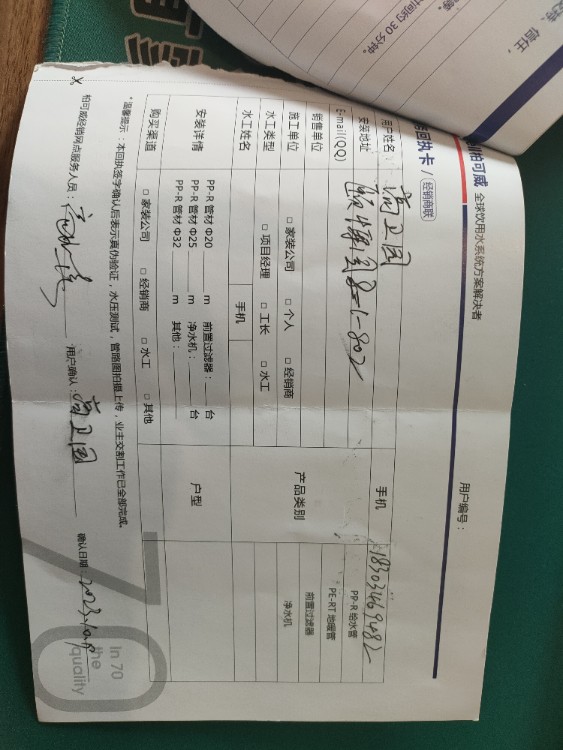 时间约30分钟。
信任
柏可威 全球饮用水系统方案解决者
回执卡 / 经销商联
用户编号：
用户姓名 高卫国 手机 18303469482
安装地址 8-1-802
E-mail(QQ)
销售单位
产品类别
PP-R 给水管
PE-RT 地暖管
前置过滤器
净水机
施工单位 □ 家装公司 □ 个人 □ 经销商
水工类型 □ 项目经理 □ 工长 □ 水工
水工姓名 手机
安装详情 PP-R 管材 Φ20 m 前置过滤器： 台
PP-R 管材 Φ25 m 净水机： 台
PP-R 管材 Φ32 m 其他：
户型
购买渠道 □ 家装公司 □ 经销商 □ 水工 □ 其他
*温馨提示：本回执签字确认后表示真伪验证，水压测试，管路图拍摄上传，业主交割工作已全部完成。
柏可威经销网点服务人员： 用户确认：高卫国 确认日期：2023.10.9
70
in 70
the
quality